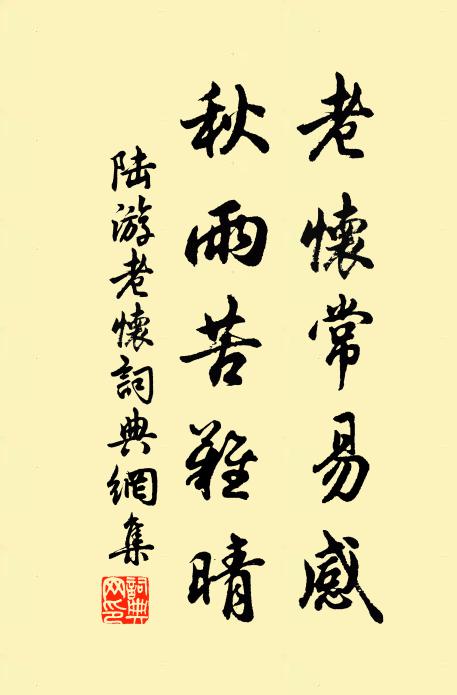 老懷常易感
秋雨苦難晴
陆游老懷詞典網集
詞典
网印